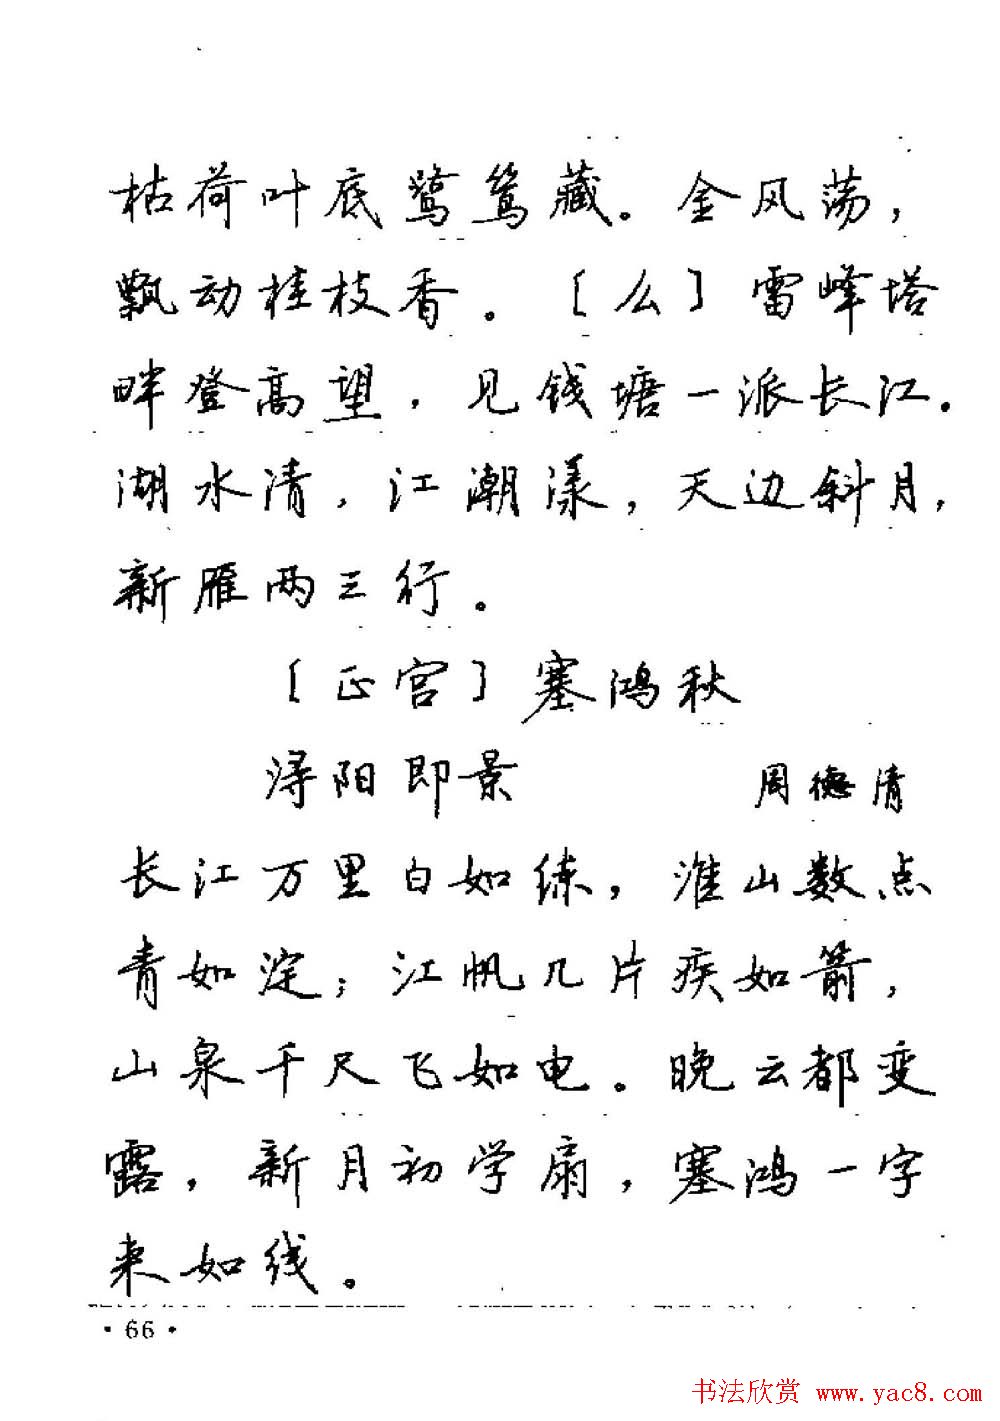 枯荷叶底鹭鸶藏。金风荡，
飘动桂枝香。〔么〕雷峰塔
畔登高望，见钱塘一派长江。
湖水清，江潮漾，天边斜月，
新雁两三行。
〔正宫〕塞鸿秋
浔阳即景 周德清
长江万里白如练，淮山数点
青如淀；江帆几片疾如箭，
山泉千尺飞如电。晚云都变
露，新月初学扇，塞鸿一字
来如线。
·66·
书法欣赏 www.yac8.com